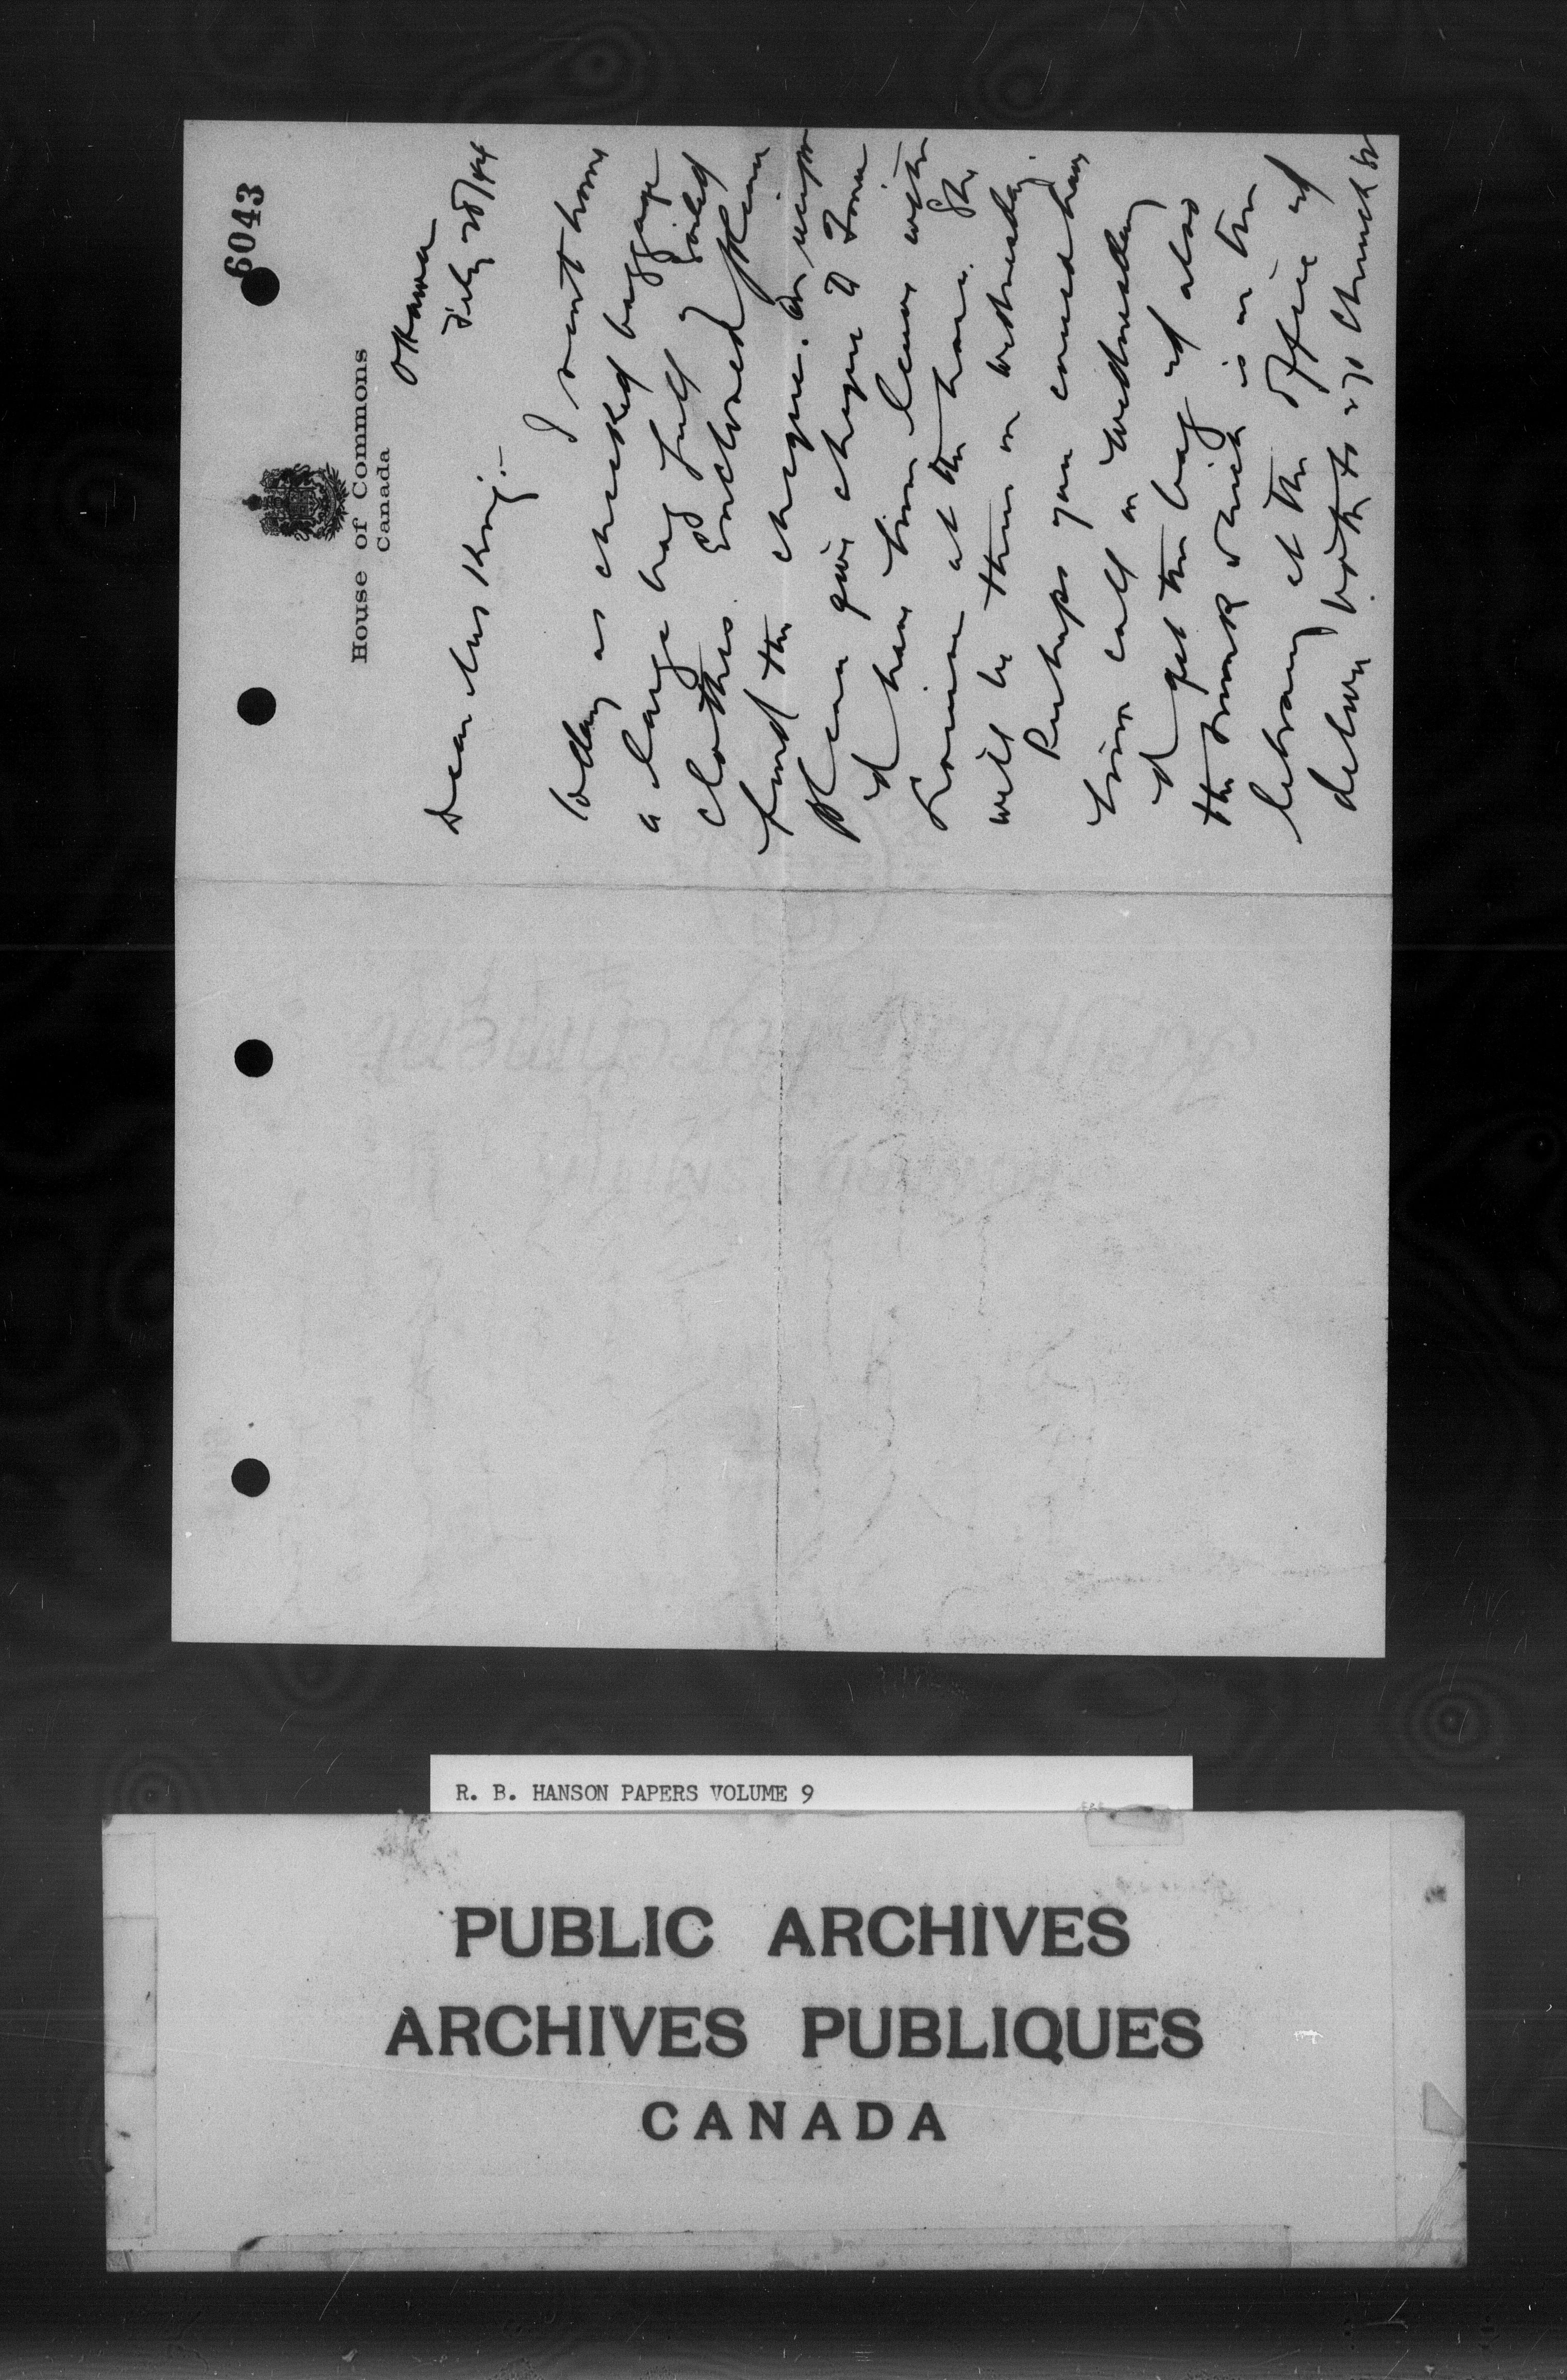 6043
House of Commons
Canada
Ottawa
July 28/44
Dear Miss King:-
I sent home
today as checked baggage
a large bag full of soiled
clothes. Enclosed please
find the cheque. On receipt
please give cheque to
& have him leave with
at the house. She
will be there on Wednesday.
Perhaps you could have
him call on Wednesday
& get the bag & also
the trunk which is in the
library at the office &
deliver both to 270 Church St
R. B. HANSON PAPERS VOLUME 9
PUBLIC ARCHIVES
ARCHIVES PUBLIQUES
CANADA